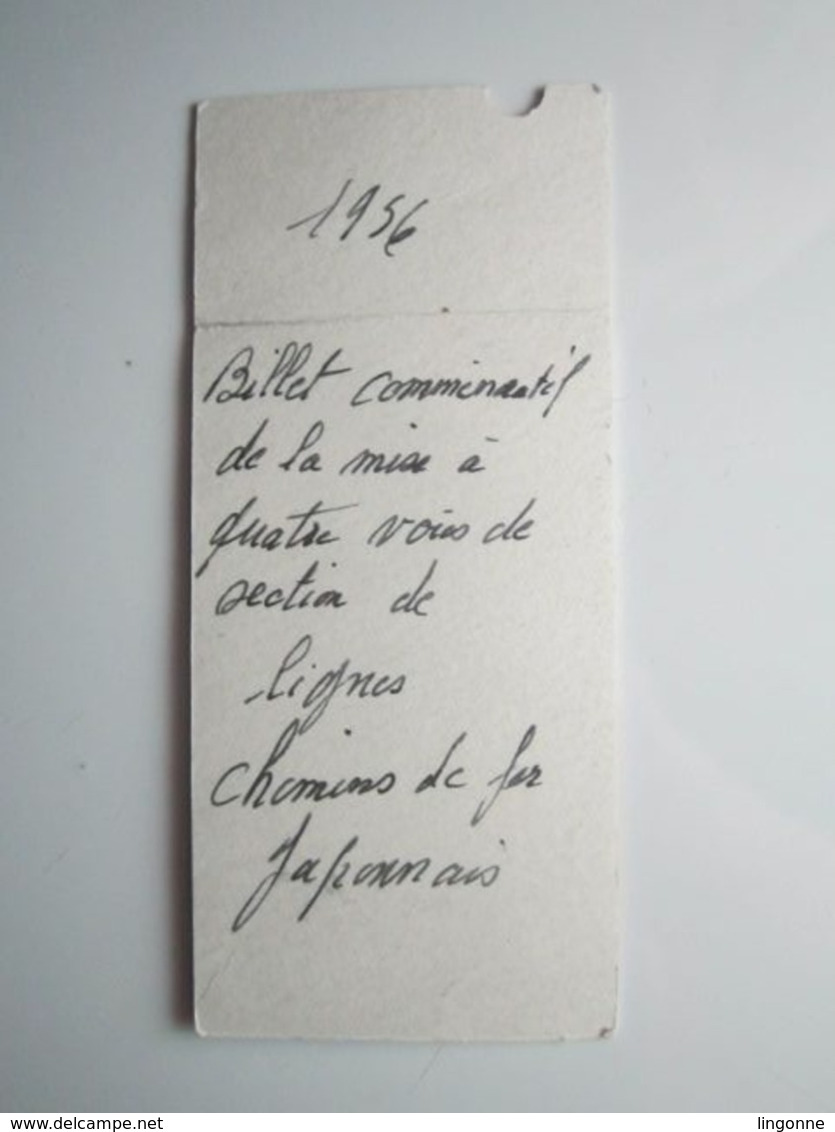 1956
Billet comminatif
de la mise à
quatre voies de
section de
lignes
chemins de fer
Japonnais
delcampe.net
lingonne